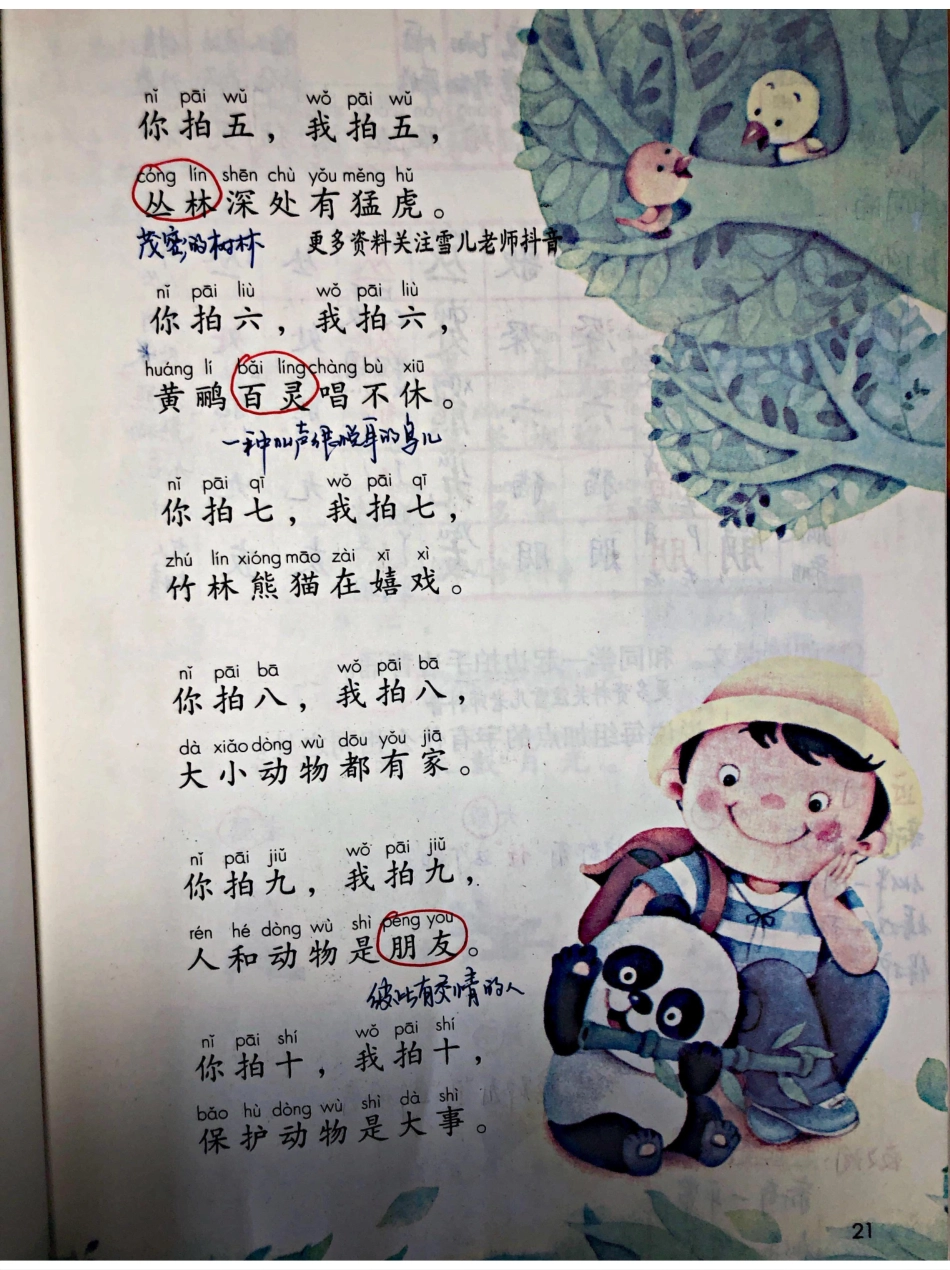 nǐ pāi wǔ wǒ pāi wǔ
你拍五，我拍五，
cóng lín shēn chù yǒu měng hǔ
丛林深处有猛虎。
茂密的树林 更多资料关注雪儿老师抖音
nǐ pāi liù wǒ pāi liù
你拍六，我拍六，
huáng lí bǎi líng chàng bù xiū
黄鹂百灵唱不休。
一种叫声很悦耳的鸟儿
nǐ pāi qī wǒ pāi qī
你拍七，我拍七，
zhú lín xióng māo zài xī xì
竹林熊猫在嬉戏。
nǐ pāi bā wǒ pāi bā
你拍八，我拍八，
dà xiǎo dòng wù dōu yǒu jiā
大小动物都有家。
nǐ pāi jiǔ wǒ pāi jiǔ
你拍九，我拍九，
rén hé dòng wù shì péng you
人和动物是朋友。
彼此有交情的人
nǐ pāi shí wǒ pāi shí
你拍十，我拍十，
bǎo hù dòng wù shì dà shì
保护动物是大事。
21